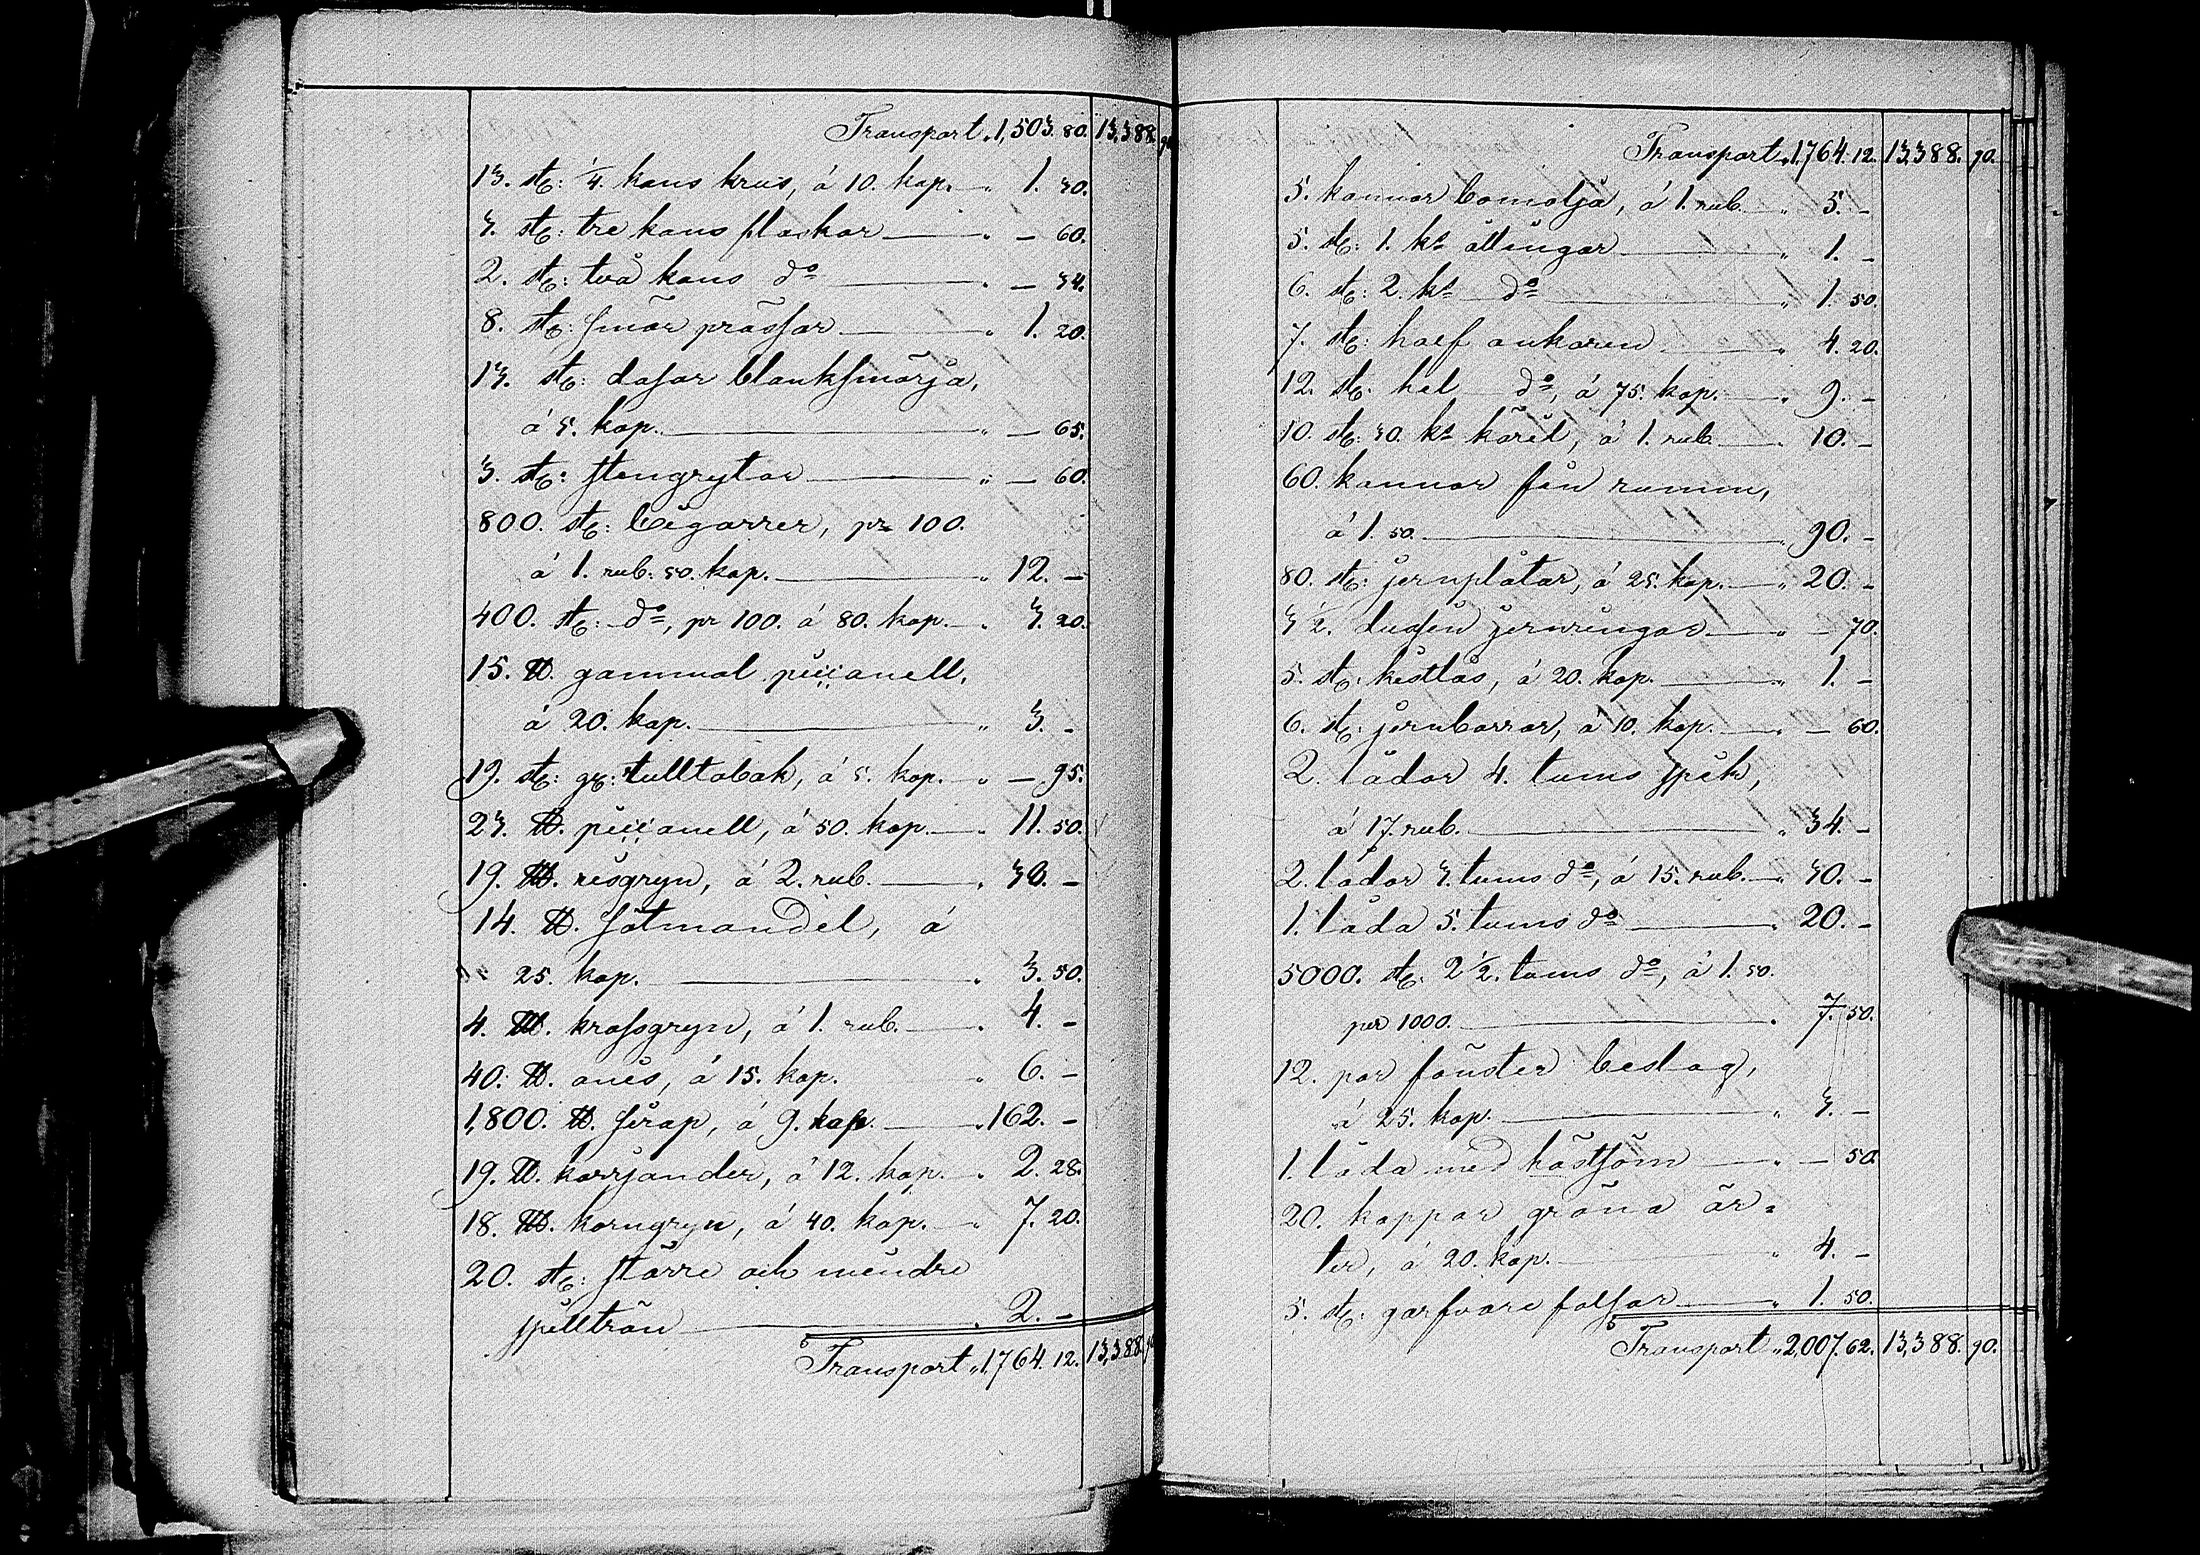 Transport „ 1,503. 80. 13,388. 90.
13. st: 1/4. kans krus, á 10. kop. „ 1. 30.
3. st: tre kans flaskor „ — 60.
2. st: två kans do „ — 34.
8. st: smör prässar „ 1. 20.
13. st: dosor blanksmörja,
á 5. kop. „ — 65.
3. st: stengrytor „ — 60.
800. st: Cigarrer, pr 100.
á 1. rub: 50. kop. „ 12. —
400. st: do, pr 100. á 80. kop. „ 3. 20.
15. ℔. gammal piccanell,
á 20. kop. „ 3. —
19. st: gr: rulltobak, á 5. kop. „ — 95.
23. ℔. piccanell, á 50. kop. „ 11. 50.
19. L℔. risgryn, á 2. rub. „ 38. —
14. ℔. sötmandel, á
25. kop. „ 3. 50.
4. L℔. krossgryn, á 1. rub. „ 4. —
40. ℔. anis, á 15. kop. „ 6. —
1,800. ℔. sirap, á 9. kop. „ 162. —
19. ℔. korrjander, á 12. kop. „ 2. 28.
18. L℔. korngryn, á 40. kop. „ 7. 20.
20. st: större och mindre
spilltrån „ 2. —
Transport „ 1,764. 12. 13,388. 90.
Transport „ 1,764. 12. 13,388. 90.
5. kannor bomolja, á 1. rub. „ 5. —
5. st: 1. ks åttingar „ 1. —
6. st: 2. ks do „ 1. 50.
7. st: half ankaren „ 4. 20.
12. st: hel do, á 75. kop. „ 9. —
10. st: 30. ks käril, á 1. rub. „ 10. —
60. kannor fin rumm,
á 1. 50. „ 90. —
80. st: jernplåtar, á 25. kop. „ 20. —
3 1/2. dussin jernringar „ — 70.
5. st: kistlås, á 20. kop. „ 1. —
6. st: jernborrar, á 10. kop. „ — 60.
2. lådor 4. tums spik,
á 17. rub. „ 34. —
2. lådor 3. tums do, á 15. rub. „ 30. —
1. låda 5. tums do „ 20. —
5000. st: 2 1/2. tums do, á 1. 50.
per 1000. „ 7. 50.
12. par fönster beslag,
á 25. kop. „ 3. —
1. låda med hästsöm „ — 50.
20. kappar gröna är=
ter, á 20. kop. „ 4. —
5. st: garfvare falsar „ 1. 50.
Transport „ 2,007. 62. 13,388. 90.